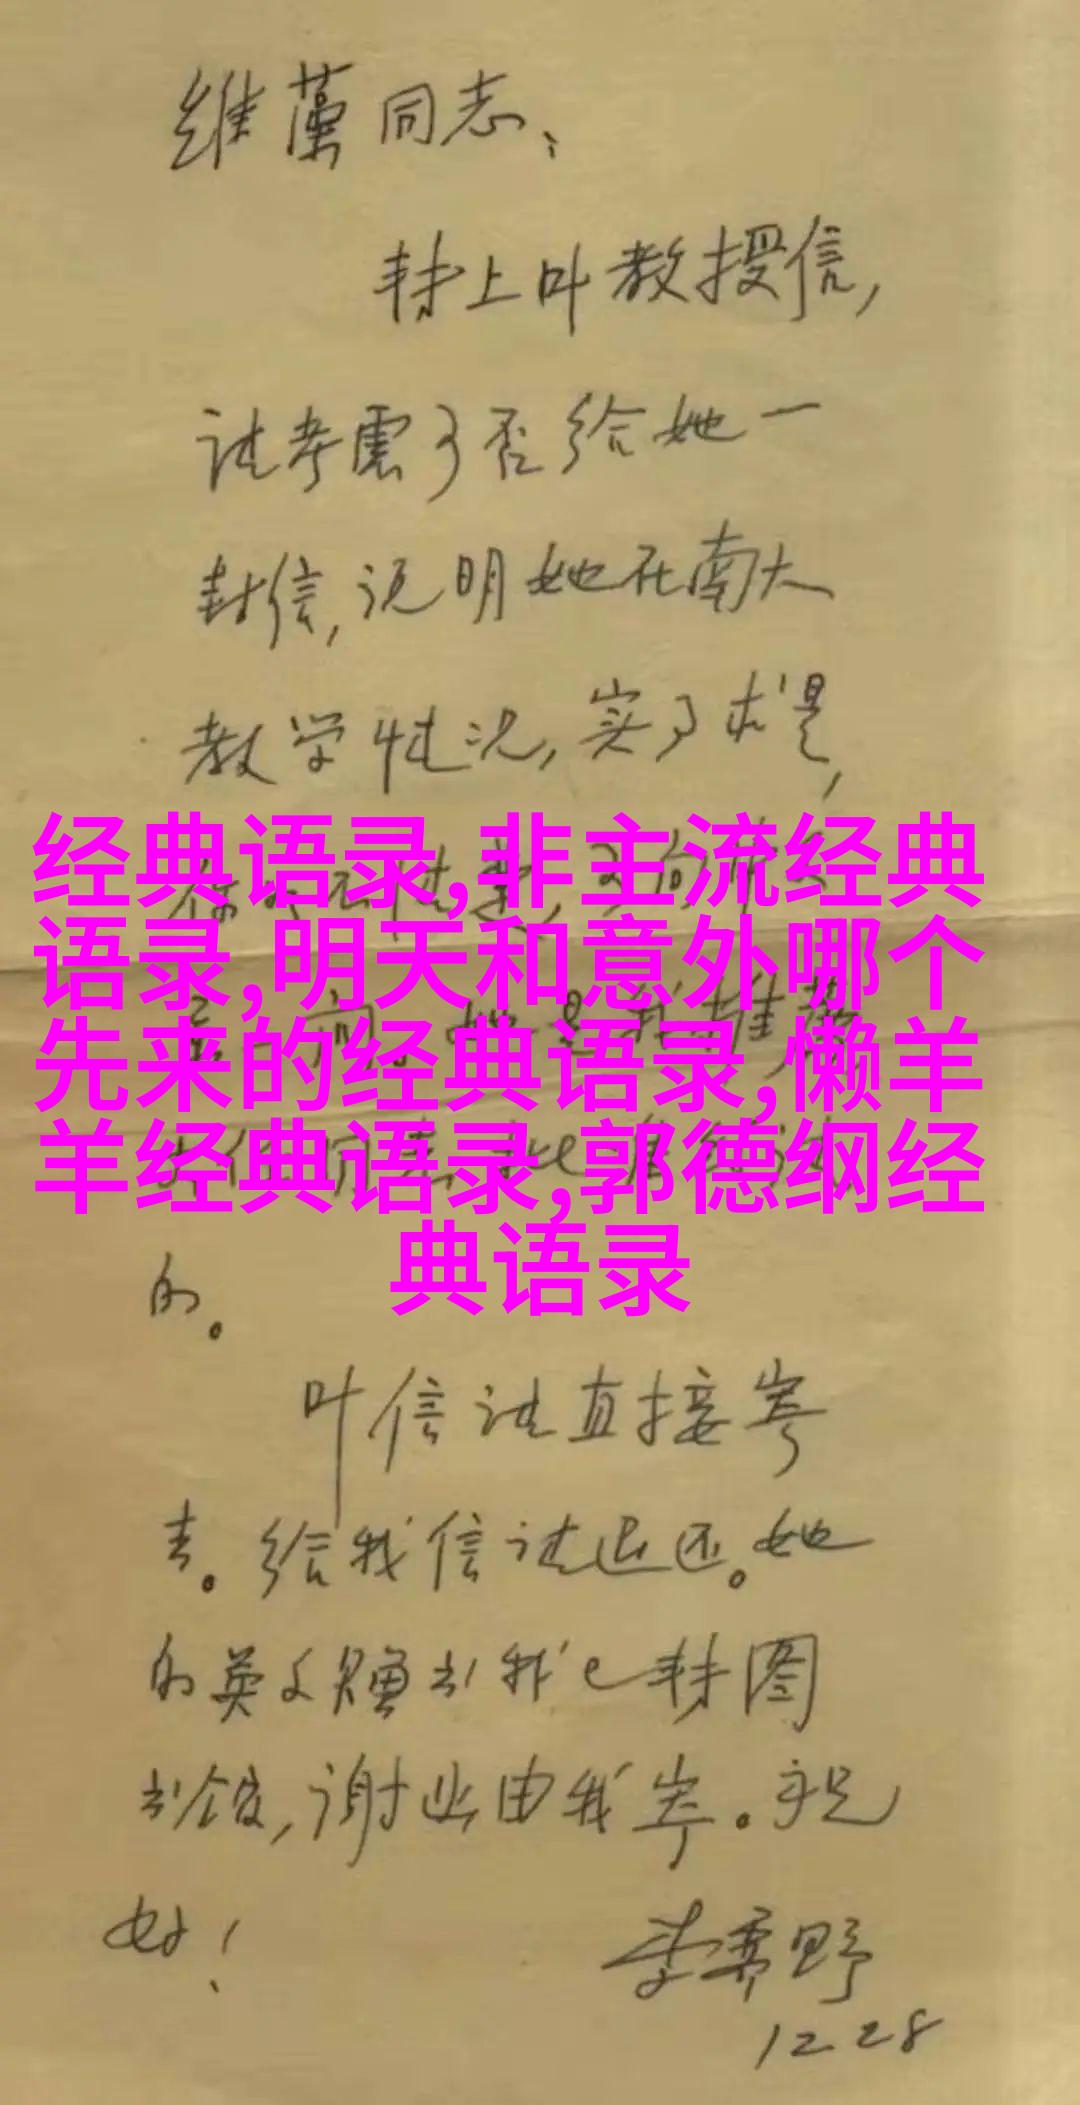 维藻同志：
转上叶教授信，
请考虑可否给她一
封信，说明她在南大
教学情况，实事求是，
经典语录,非主流经典
语录,明天和意外哪个
先来的经典语录,懒羊
羊经典语录,郭德纲经
典语录
的。
叶信请直接寄
去。给我信请退还。她
的英文赠书我已转图
书馆，谢此由我寄。祝
好！
李霁野
12 28